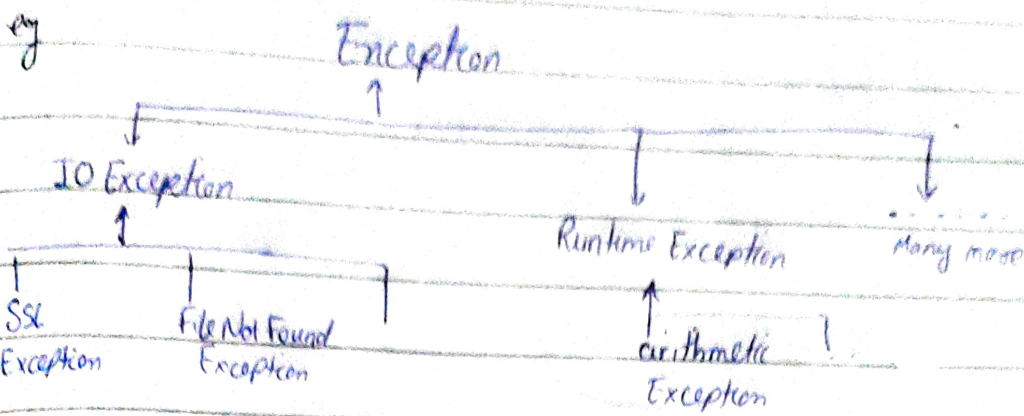 eg
Exception
IO Exception
Runtime Exception
Many more
SSL
Exception
File Not Found
Exception
arithmetic
Exception